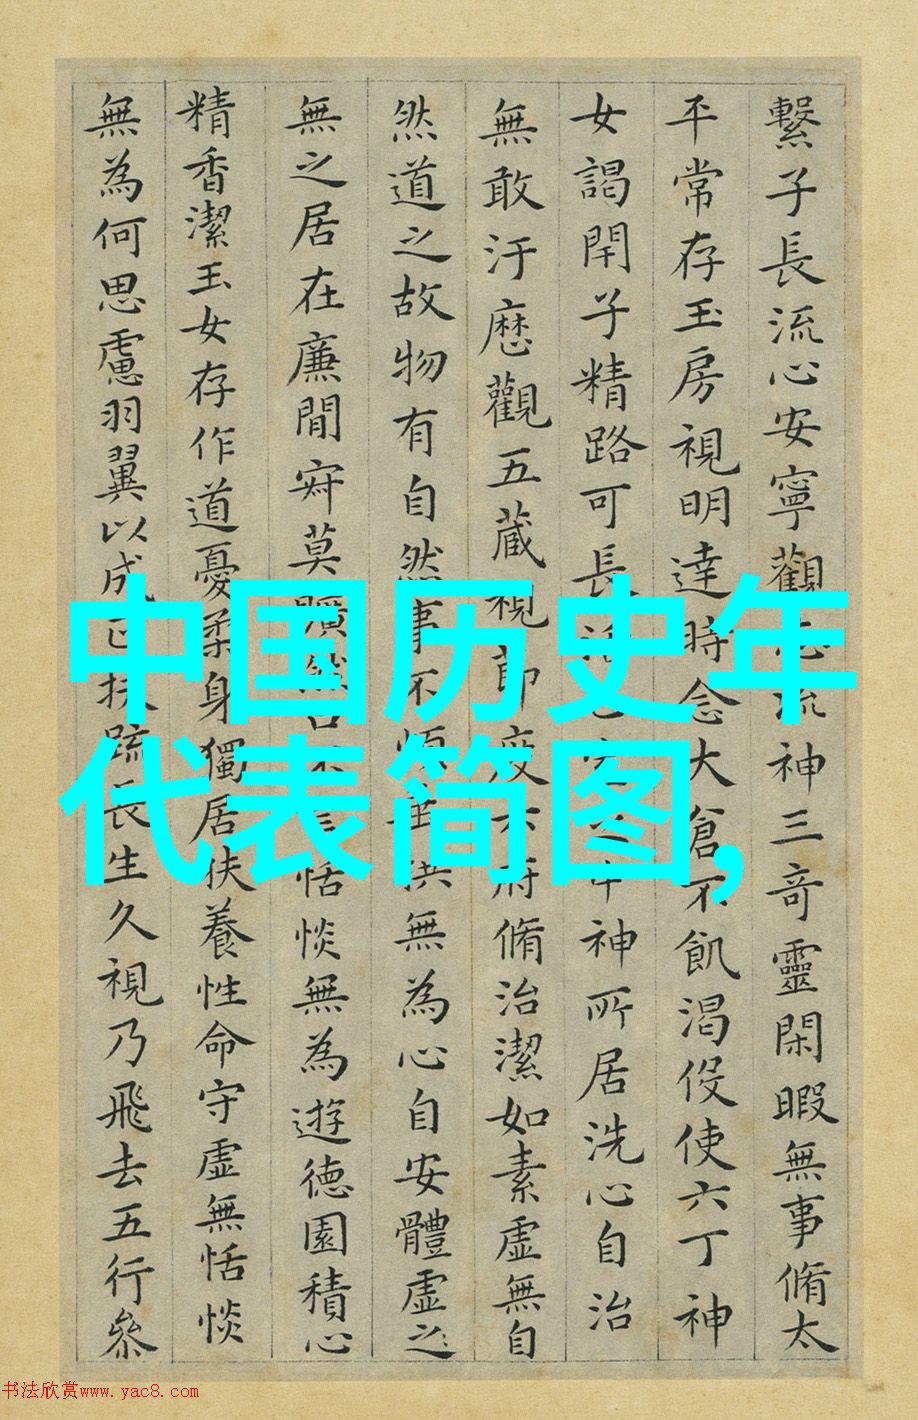 繫子長流心安寧觀志流神三奇靈閑暇無事脩太
平常存玉房視明達時念大倉不飢渴伇使六丁神
女謁閇子精路可長活正室之中神所居洗心自治
無敢汙歷觀五藏視節度六府脩治潔如素虛無自
然道之故物有自然事不煩垂拱無為心自安體虛之
無之居在廉閒寂莫曠然口不言恬惔無為遊德園積心
精香潔玉女存作道憂柔身獨居扶養性命守虛無恬惔
無為何思慮羽翼以成正扶疏長生久視乃飛去五行參
中国历史年
代表简图,
书法欣赏www.yac8.com